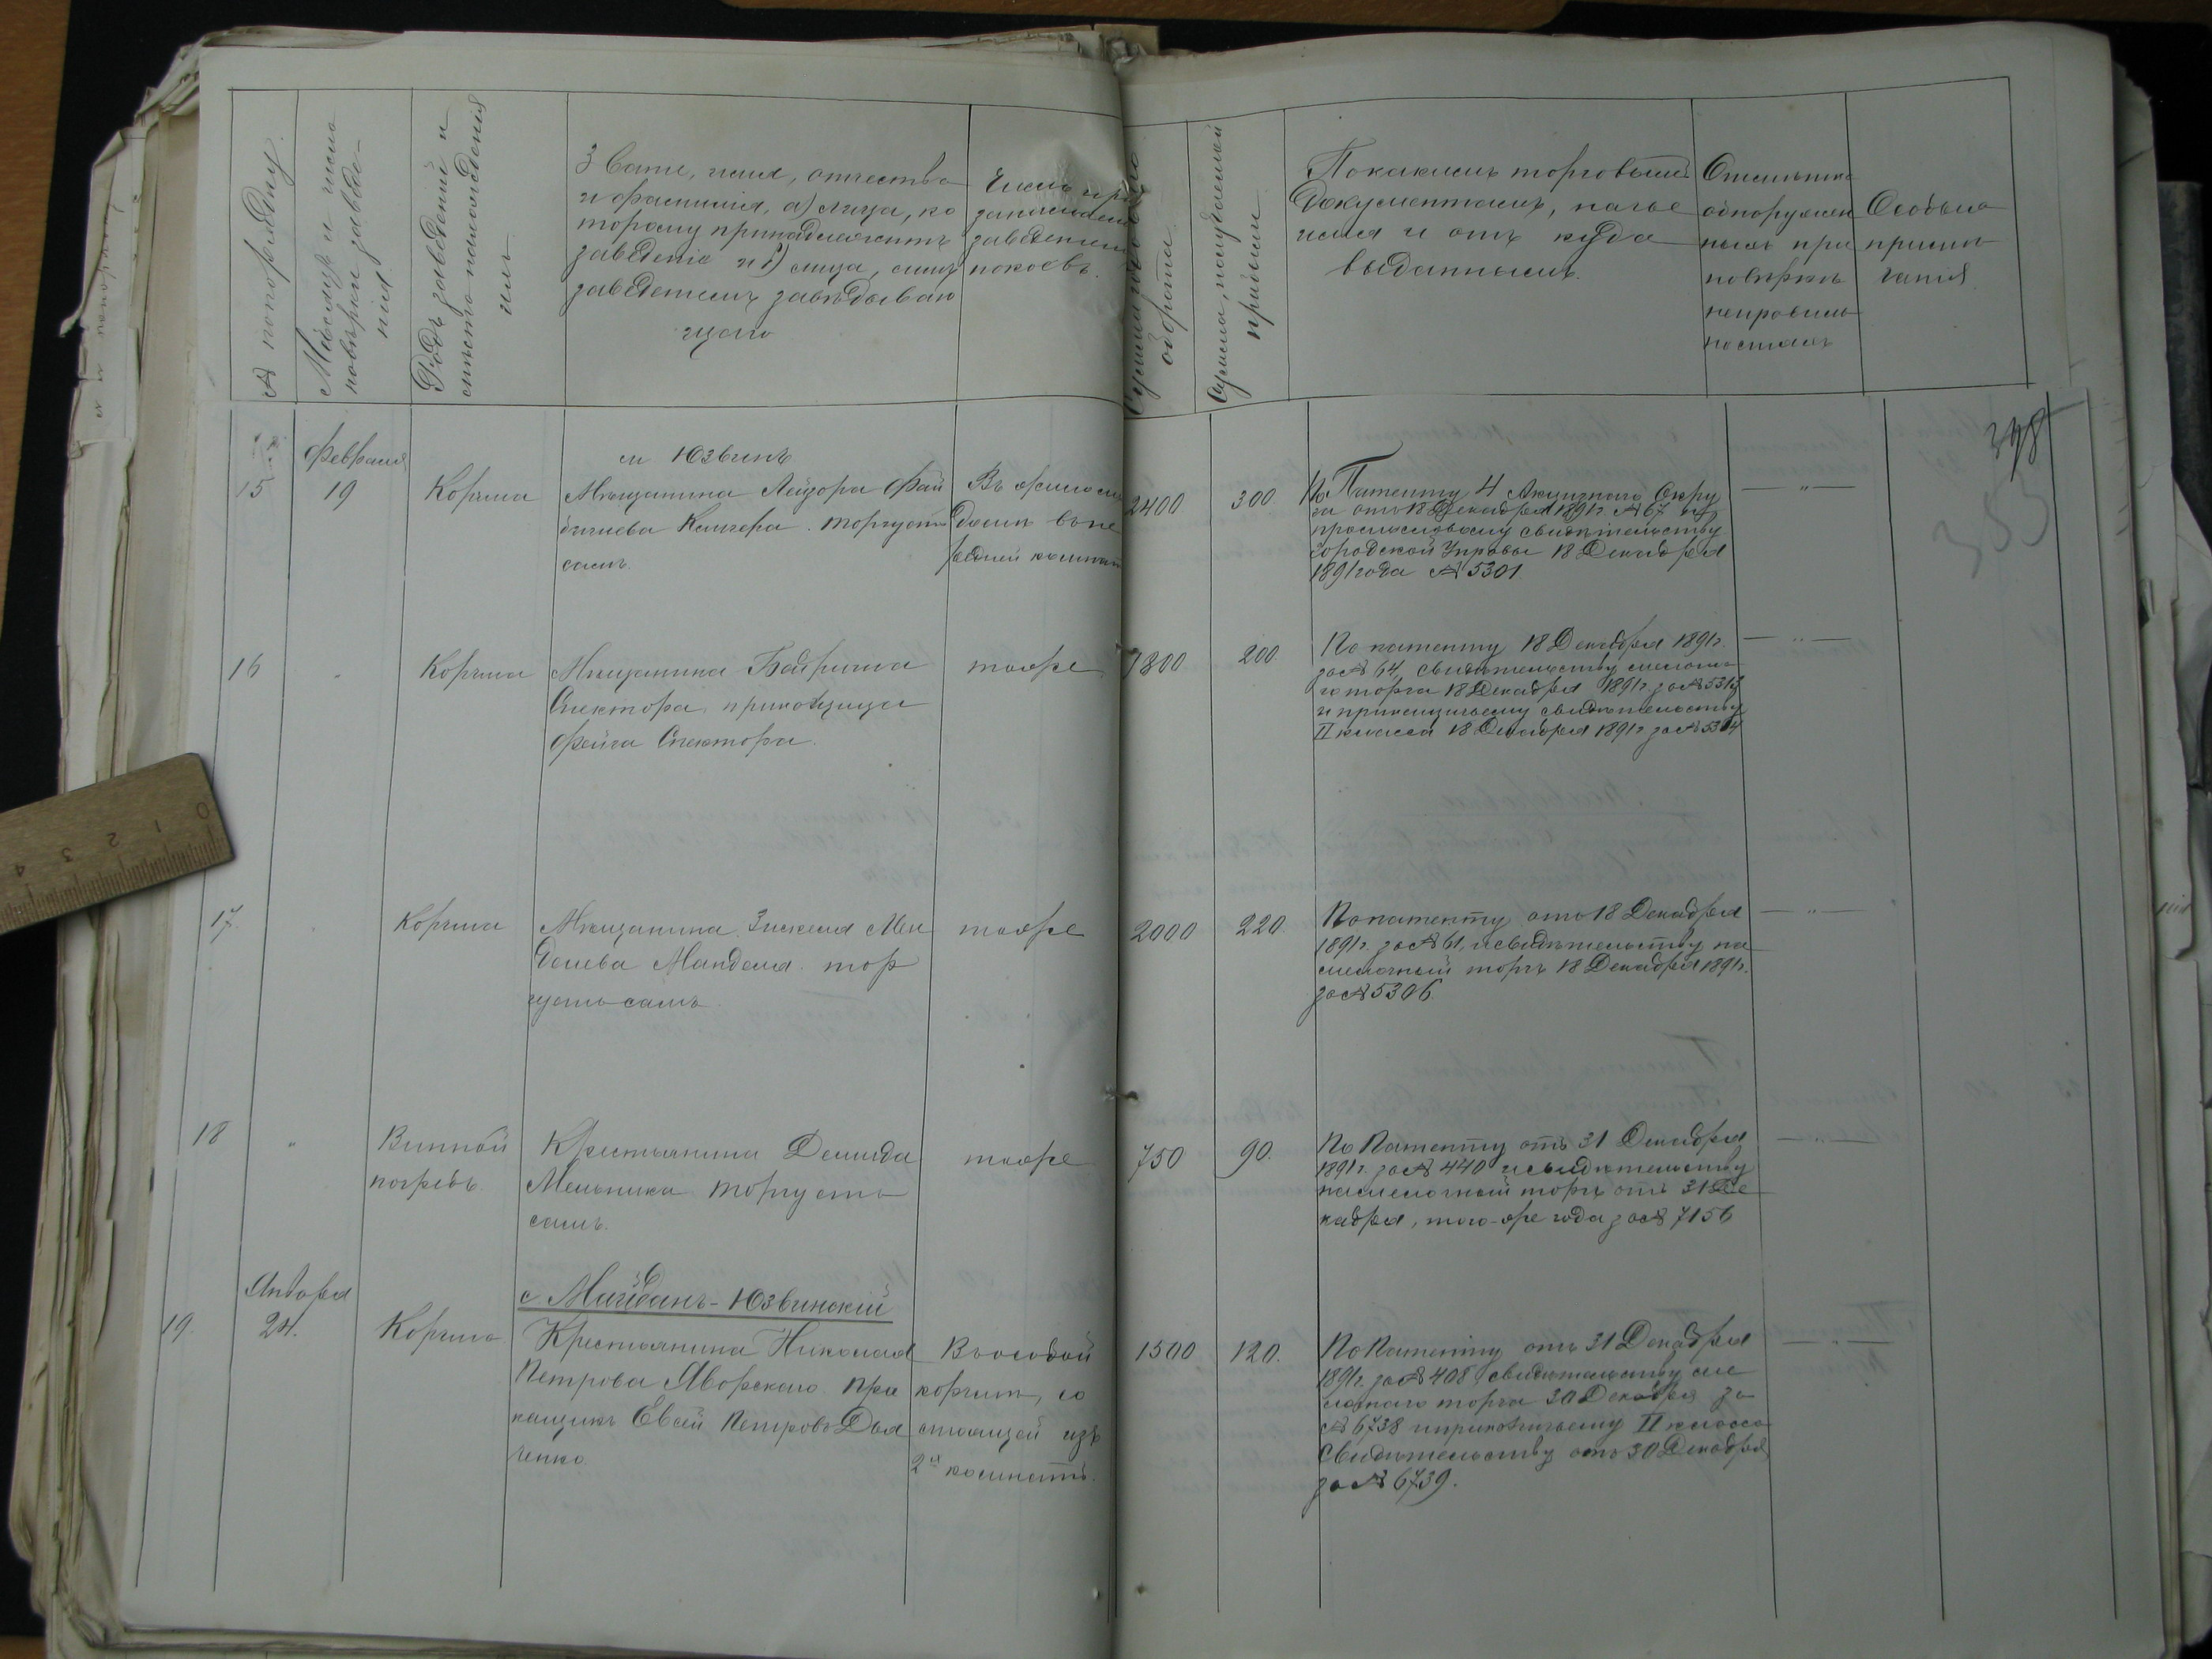 № по порядку.
Мѣсяцъ и число
повѣрки заведе-
нія
Родъ заведеній и
мѣсто нахожденія
ихъ.
Званіе, имя, отчество
и фамилія, а) лица, ко
торому принадлежитъ
заведеніе и б) лица, симъ
заведеніемъ завѣдываю
щаго
Число
занимаемыхъ
заведеніемъ
покоевъ.
оборота
Сумма, получаемой
прибыли
По какимъ торговымъ
документамъ, на чье
имя и отъ куда
выданнымъ.
обнаружен
ныхъ при
повѣркѣ
неправиль
ностяхъ
Особыя
примѣ
чанія
398
353
Февраля
м Юзвинъ
15
19
Корчма
Мѣщанина Лейзора Фай
вишева Клигера. торгуетъ
самъ.
Въ жиломъ
домѣ въ пе
редней комнат
2400
300
По Патенту 4 Акцизнаго Окру
га отъ 18 Декабря 1891 г. № 67 и
промысловому свидѣтельству
Городской Управы 18 Декабря
1891 года № 5301
— " —
16
"
Корчма
Мѣщанина
Спектора, прикащица
Фейга Спектора.
тоже
1800
200.
По патенту 18 Декабря 1891 г.
за № 64, свидѣтельству мелочна
го торга 18 Декабря 1891 г. за № 5313
и прикащичьему свидѣтельству
II класса 18 Декабря 1891 г. за № 5314
— " —
17.
"
Корчма
Мѣщанина Зискеля Мен
делева Манделя. тор
гуетъ самъ.
тоже
2000
220.
По патенту отъ 18 Декабря
1891 г. за № 61, и свидѣтельству на
мелочный торгъ 18 Декабря 1891 г.
за № 5306.
— " —
18
"
Винный
погребъ.
Крестьянина Демида
Мельника торгуетъ
самъ.
тоже
750
90.
По Патенту отъ 31 Декабря
1891 г. за № 440 и свидѣтельству
на мелочный торгъ отъ 31 Де
кабря, того-же года за № 7156
— " —
Января
с Майданъ-Юзвинскій
19.
24.
Корчма
Крестьянина Николая
Петрова Яворскаго. При
кащикъ Евсей Петровъ Дья
ченко
Въ особой
корчмѣ, со
стоящей изъ
2хъ комнатъ.
1500
120.
По Патенту отъ 31 Декабря
1891 г. за № 408, свидѣтельству ме
лочнаго торга 30 Декабря за
№ 6738 и прикащичьему II класса
Свидѣтельству отъ 30 Декабря
за № 6739.
— " —
0 1 2 3 4